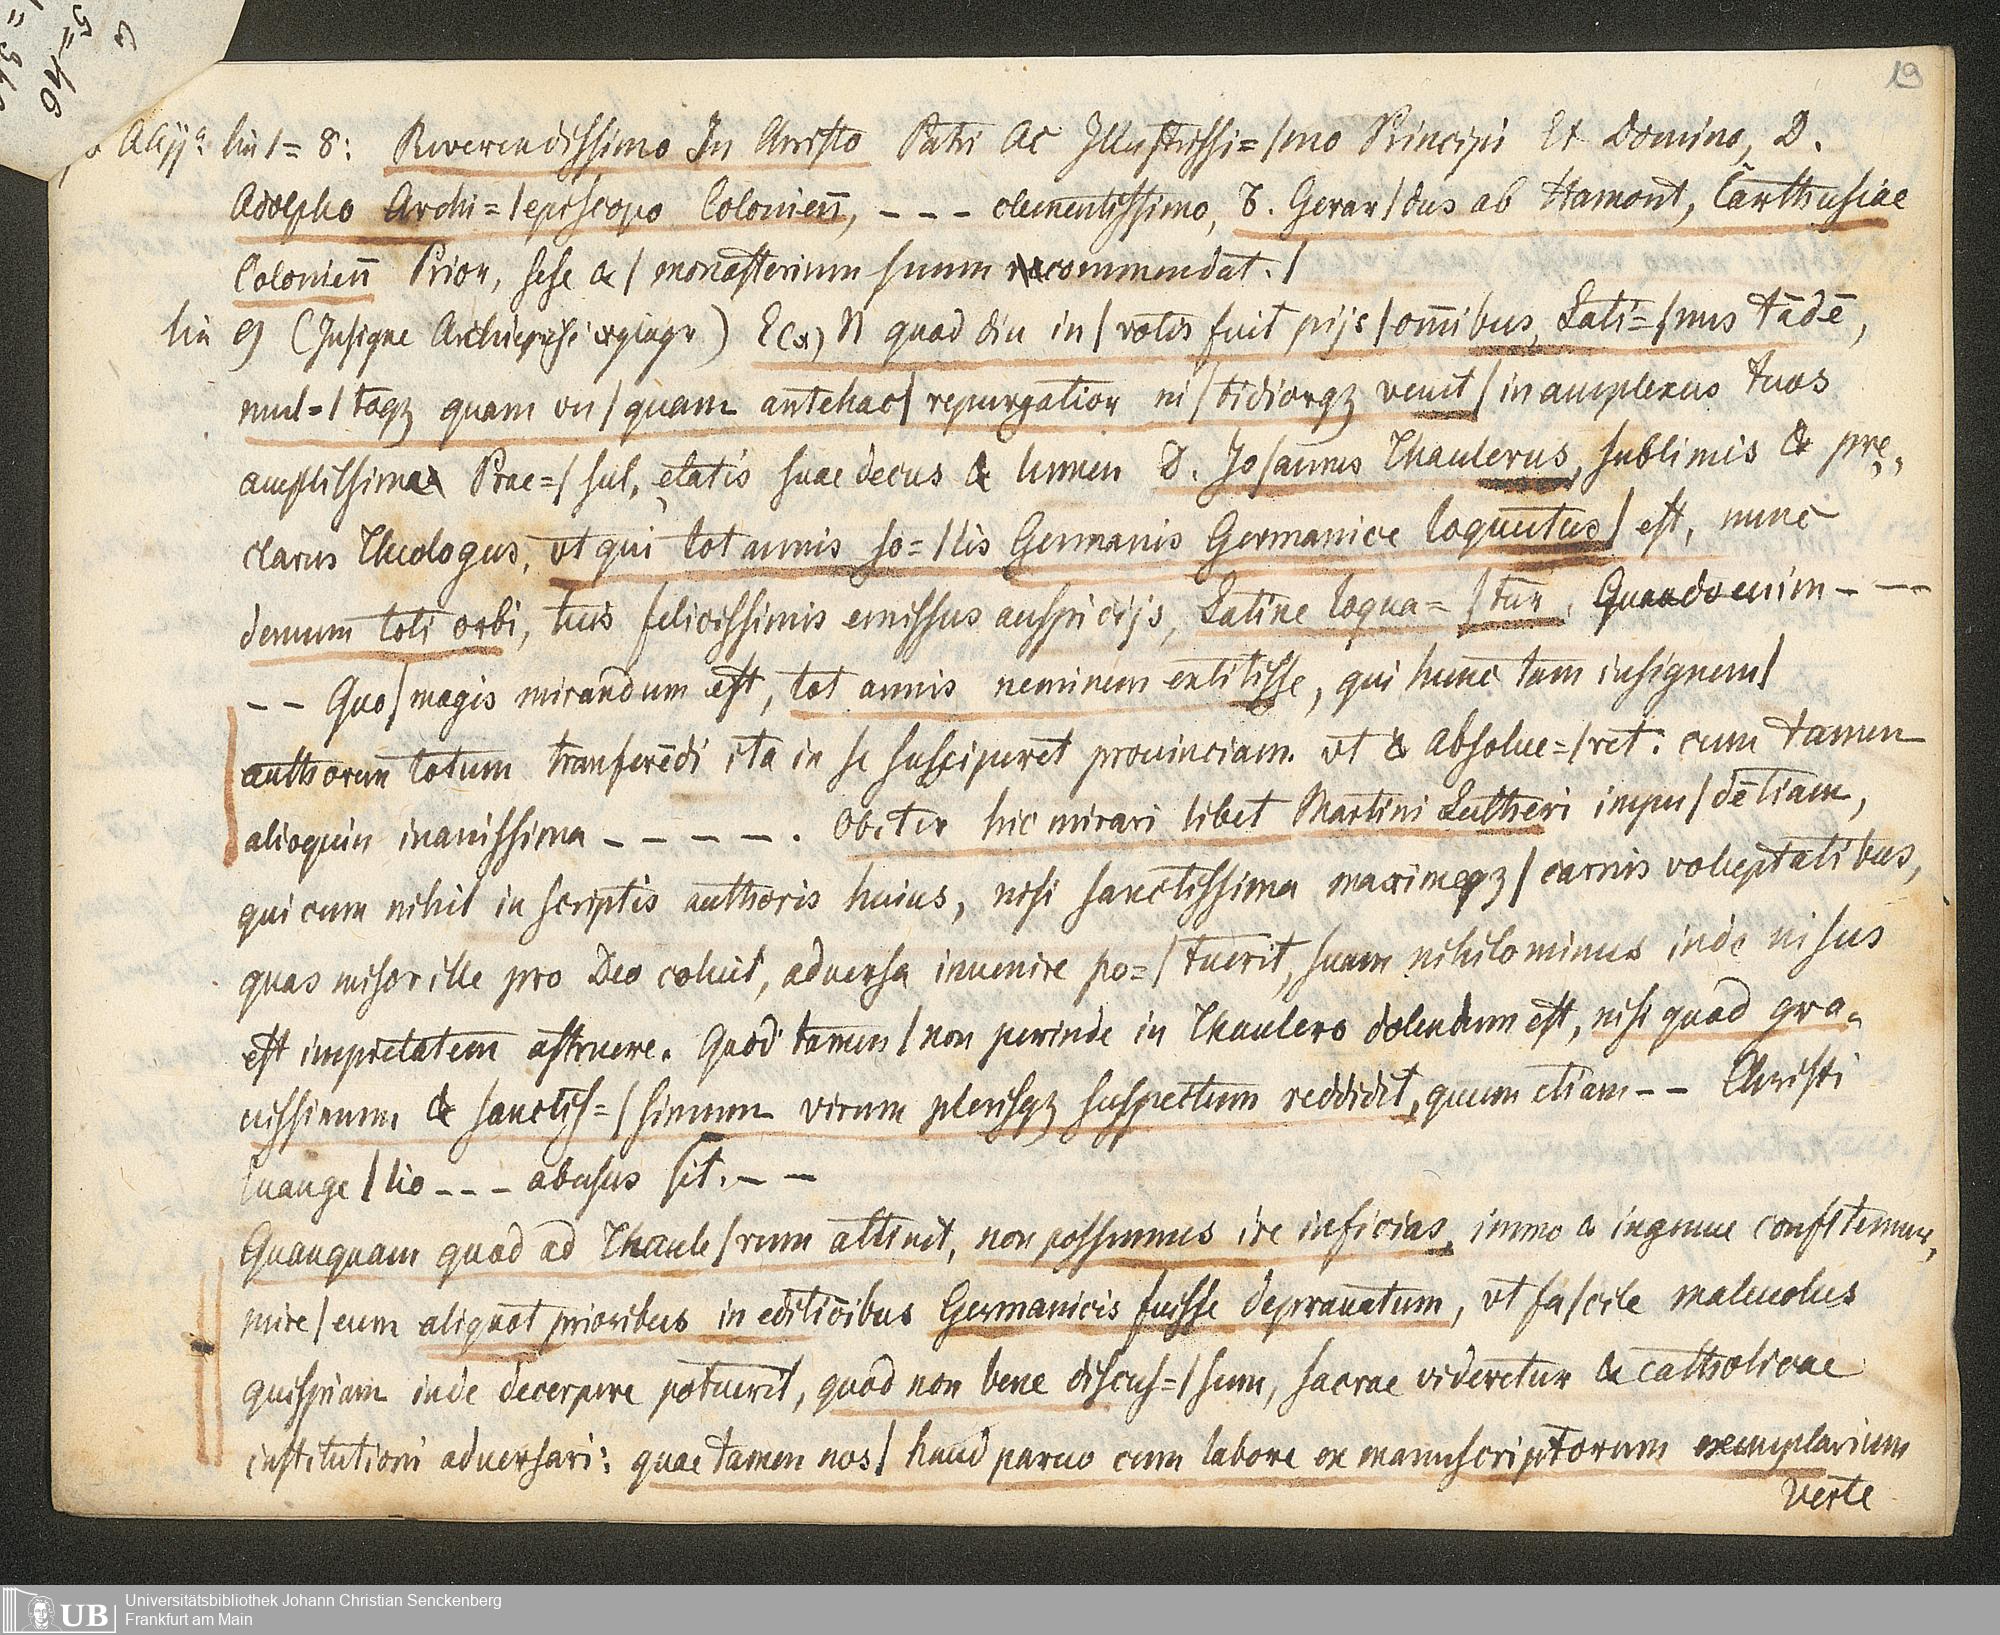 19
5=46
AAijª lin 1=8: Reverendissimo In Christo Patri Ac Illustrissi=/mo Principi Et Domino, D.
Adolpho Archi=/episcopo Colonieñ, - - - clementissimo, F. Gerar/dus ab Hamont, Carthusiae
Colonieñ Prior, sese & / monasterium suum commendat. /
lin 9 (Insigne ) E(x) N quod diu in / votis fuit pijs / om̄ibus, Lati=/nus tādē,
mul=/toqz quam vn/quam antehac / repurgatior ni/tidiorqz venit / in amplexus tuos
amplissime Prae=/sul, etatis suae decus & lumen D. Jo/annes Thaulerus, sublimis & pre,
clarus Theologus, vt qui tot annis so=/lis Germanis Germanice loquutus / est, nunc
demum toti orbi, tuis felicissimis emissus auspicijs, Latine loqua=/tur. Quando enim - -
- - Quo / magis mirandum est, tot annis neminem extitisse, qui hunc tam insignem /
authorem totum tranferēdi ita in se susciperet prouinciam. vt & absolue=/ret: cum tamen
alioquin inanissima - - - - -. Obiter hic mirari libet Martini Lutheri impu/dētiam,
qui cum nihil in scriptis authoris huius, nisi sanctissima maximeqz / carnis voluptatibus,
quas miser ille pro Deo coluit, aduersa inuenire po=/tuerit, suam nihilominus inde nisus
est impietatem astruere. Quod tamen / non perinde in Thaulero dolendum est, nisi quod gra=
uissimum & sanctis=/simum virum plerisqz suspectum reddidit, quum etiam - - Christi
Euange/lio - - - abusus sit. - -
Quanquam quod ad Thaule/rum attinet, non possumus ire inficias, immo & ingenue confitemur,
mire / eum aliquot prioribus in editiōibus Germanicis fuisse deprauatum, vt fa/cile maleuolus
quispiam inde decerpere potuerit, quod non bene discus=/sum, sacrae videretur & catholicae
institutioni aduersari: quae tamen nos / haud paruo cum labore ex manuscriptorum exemplarium
verte
UB
Universitätsbibliothek Johann Christian Senckenberg
Frankfurt am Main